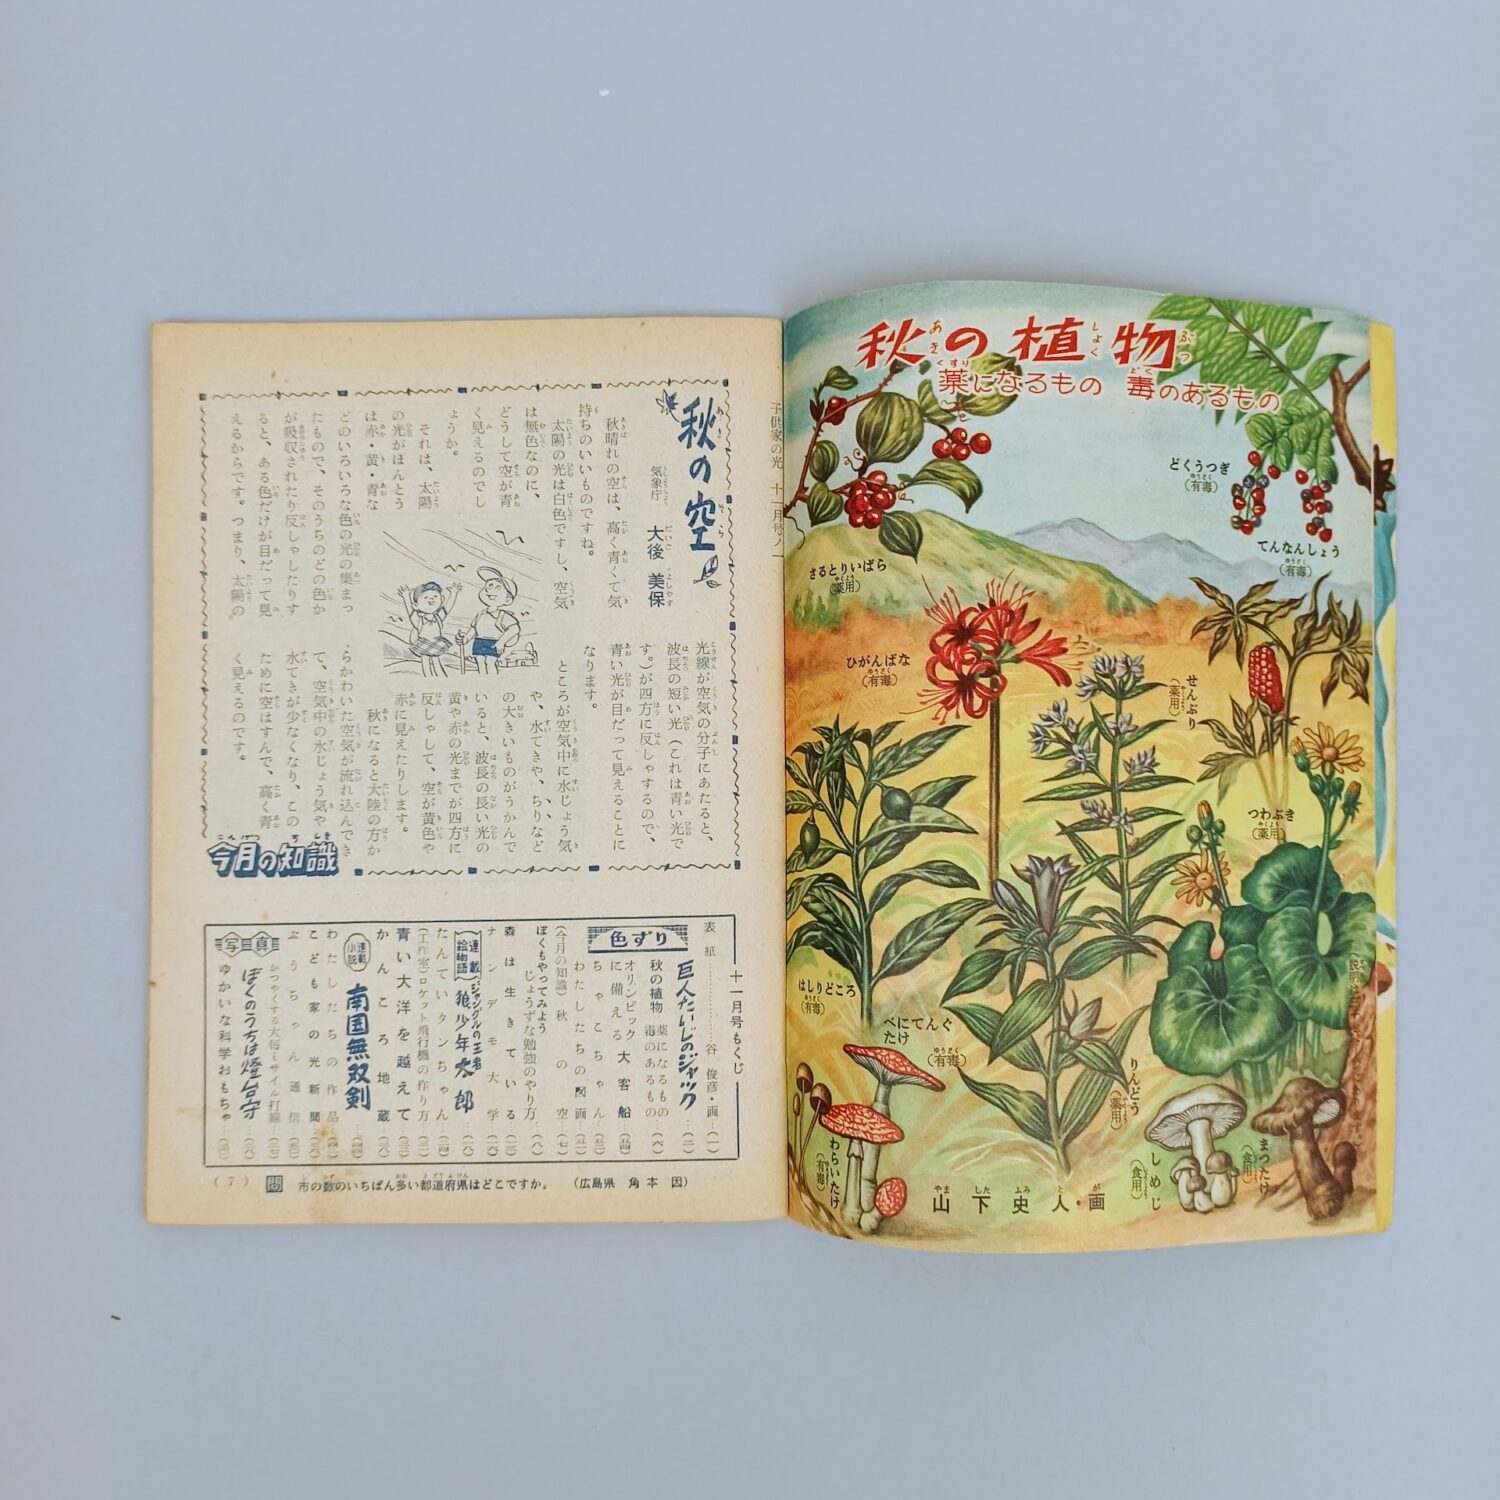 秋の植物
薬になるもの 毒のあるもの
どくうつぎ
(有毒)
てんなんしょう
(有毒)
さるとりいばら
(薬用)
ひがんばな
(有毒)
せんぶり
(薬用)
つわぶき
(薬用)
はしりどころ
(有毒)
べにてんぐ
たけ
(有毒)
りんどう
(薬用)
わらいたけ
(有毒)
しめじ
(食用)
まつたけ
(食用)
山下史人・画
子供家の光 十一月号ノ一
秋の空
気象庁 大後 美保
秋晴れの空は、高く青くて気
持ちのいいものですね。
太陽の光は白色ですし、空気
は無色なのに、
どうして空が青
く見えるのでし
ょうか。
それは、太陽
の光がほんとう
は赤・黄・青な
どのいろいろな色の光の集まっ
たもので、そのうちのどの色か
が吸収されたり反しゃしたりす
ると、ある色だけが目だって見
えるからです。つまり、太陽の
光線が空気の分子にあたると、
波長の短い光(これは青い光で
す。)が四方に反しゃするので、
青い光が目だって見えることに
なります。
ところが空気中に水じょう気
や、水てきや、ちりなど
の大きいものがうかんで
いると、波長の長い光の
黄や赤の光までが四方に
反しゃして、空が黄色や
赤に見えたりします。
秋になると大陸の方か
らかわいた空気が流れ込んでき
て、空気中の水じょう気や
水てきが少なくなり、この
ために空はすんで、高く青
く見えるのです。
今月の知識
十一月号もくじ
表紙…………谷 俊彦・画…(一)
色ずり
巨人たいじのジャック…(二)
秋の植物 薬になるもの 毒のあるもの…(八)
オリンピックに備える 大客船…(五四)
ちゃこちゃん…(五三)
わたしたちの図画…(五一)
(今月の知識) 秋の空…(七)
ぼくもやってみよう じょうずな勉強のやり方…(八)
森は生きている
ナンデモ大学
連載絵物語 ジャングルの王者 狼少年太郎
たんていタンちゃん
(工作室)ロケット飛行機の作り方
青い大洋を越えて
かんころ地蔵
連載小説 南国無双剣
わたしたちの作品
こども家の光新聞
ぷうちゃん通信
写真
かつやくする大毎ミサイル打線
ぼくのうちは燈台守
ゆかいな科学おもちゃ
(7) 問 市の数のいちばん多い都道府県はどこですか。 (広島県 角本 因)